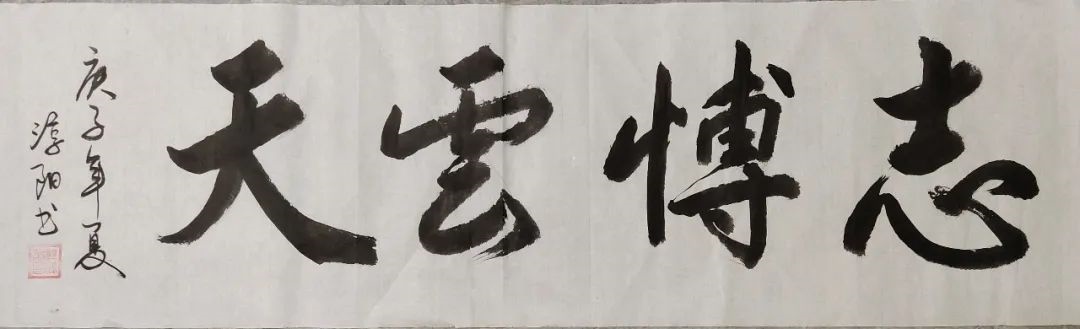 志愽雲天
庚子年夏
淳阳书